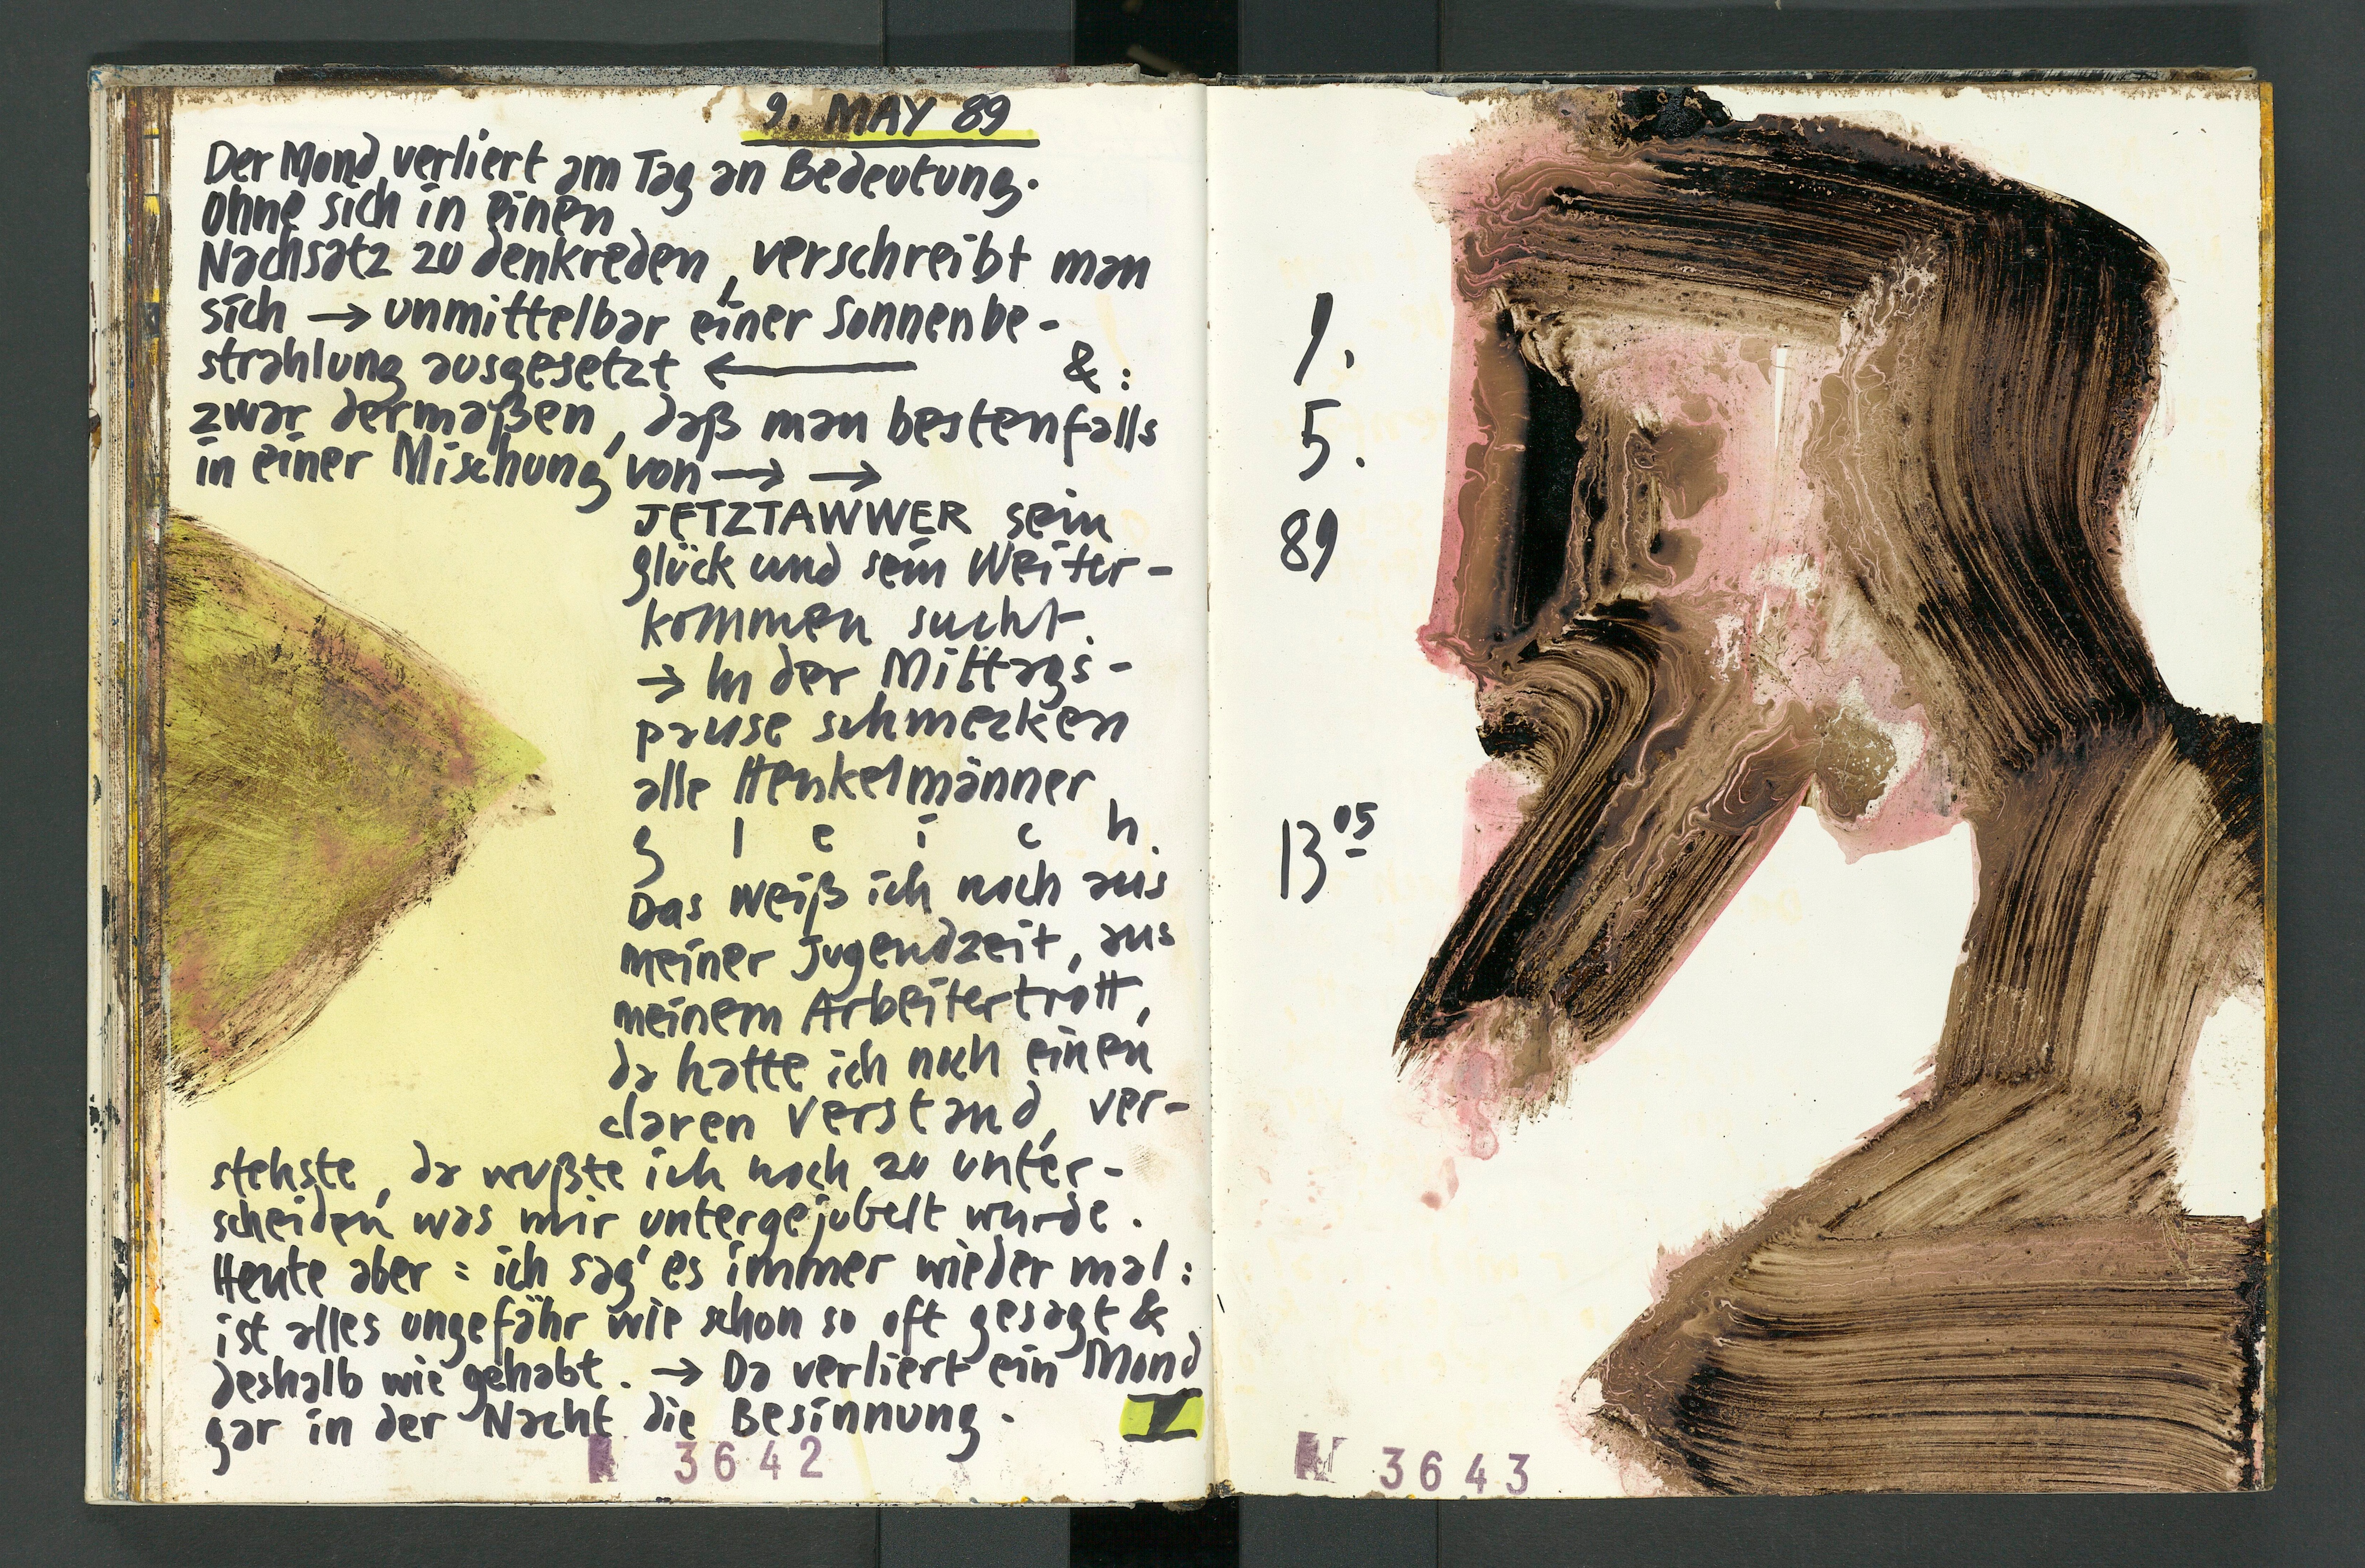 9. MAY 89
Der Mond verliert am Tag an Bedeutung.
Ohne sich in einen
Nachsatz zu denkreden, verschreibt man
sich → unmittelbar einer Sonnenbe-
strahlung ausgesetzt ← &:
zwar dermaßen, daß man bestenfalls
in einer Mischung von → →
JETZTAWWER sein
glück und sein Weiter-
kommen sucht.
→ In der Mittags-
pause schmecken
alle Henkelmänner
g l e i c h.
Das weiß ich noch aus
meiner Jugendzeit, aus
meinem Arbeitertrott,
da hatte ich noch einen
claren Verstand, ver-
stehste, da wußte ich noch zu unter-
scheiden was mir untergejubelt wurde.
Heute aber: ich sag' es immer wieder mal:
ist alles ungefähr wie schon so oft gesagt &
deshalb wie gehabt. → Da verliert ein Mond
gar in der Nacht die Besinnung.
3642
9.
5.
89
13 05
N 3643